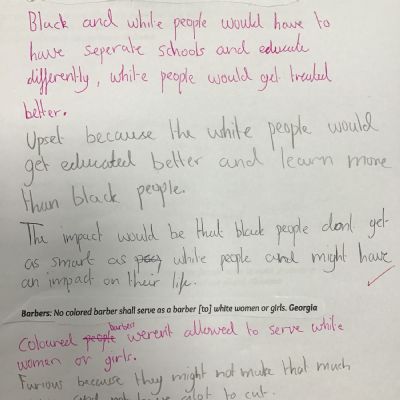 Black and white people would have to
have seperate schools and educate
differently, white people would get treated
better.
Upset because the white people would
get educated better and learn more
than black people.
The impact would be that black people dont get
as smart as white people and might have
an impact on their life.
Barbers: No colored barber shall serve as a barber [to] white women or girls. Georgia
Coloured people barbers weren't allowed to serve white
women or girls.
Furious because they might not make that much
to cut.